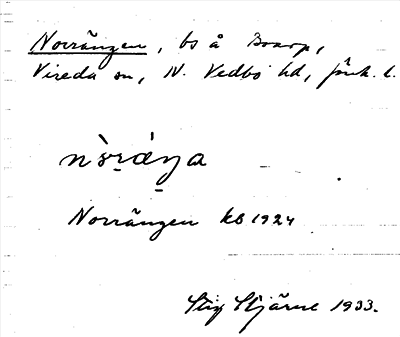 Norrängen, bs å Boarp,
Vireda sn, N. Vedbo hd, Jönk. l.
nò̀rä́ŋa
Norrängen kb 1924
Stig Stjärne 1933.